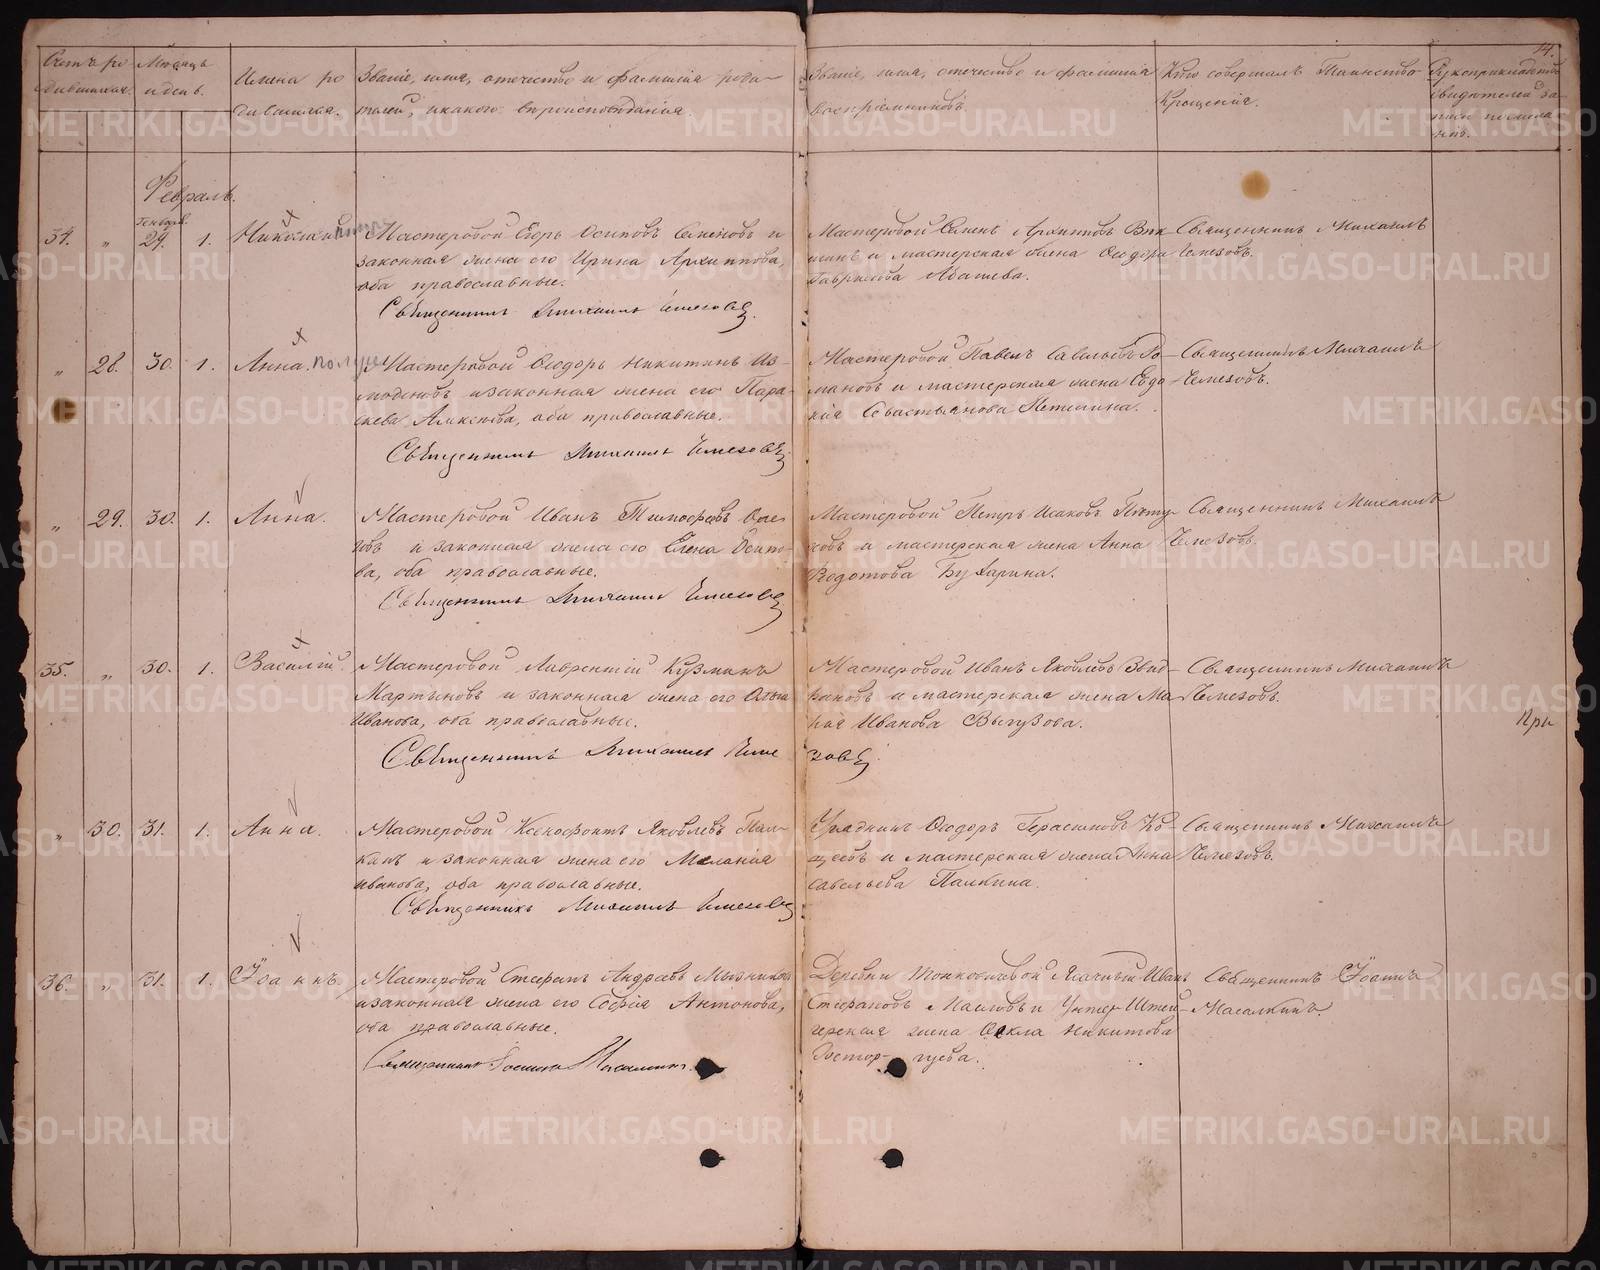 Счетъ ро-
дившихся.
Мѣсяцъ
и день.
Имена ро
дившихся.
Званіе, имя, отечество и фамилія роди-
телей, и какого вѣроисповѣданія.
Званіе, имя, отечество и фамилія
воспріемниковъ.
Кто совершалъ Таинство
Крещенія.
Рукоприкладство
свидѣтелей за-
писи по жела-
нію.
14.
Февраль.
Генваря.
34. " 29. 1. Николай
Мастеровой Егоръ Осиповъ Семеновъ и
законная жена его Ирина Архиппова,
оба православные.
Священникъ Михаилъ Чемезовъ.
Мастеровой Семенъ Архиповъ
и мастерская жена Ѳеодора
Гаврилова Абашева.
Священникъ Михаилъ
Чемезовъ.
" 28. 30. 1. Анна.
Мастеровой Ѳеодоръ Никитинъ Из-
модновъ и законная жена его Пара-
скева Алексѣева, оба православные.
Священникъ Михаилъ Чемезовъ
Мастеровой Павелъ Савельевъ Ро-
мановъ и мастерская жена Евдо-
кія Севастьянова Петелина.
Священникъ Михаилъ
Чемезовъ.
" 29. 30. 1. Анна.
Мастеровой Иванъ Тимофеевъ
и законная жена его Елена Осипо-
ва, оба православные.
Священникъ Михаилъ Чемезовъ
Мастеровой Петръ Исаковъ Пѣту-
ховъ и мастерская жена Анна
Ѳедотова Бухарина.
Священникъ Михаилъ
Чемезовъ.
35. " 30. 1. Василій.
Мастеровой Лаврентій Кузминъ
Мартиновъ и законная жена его
Иванова, оба православные.
Священникъ Михаилъ Чеме
зовъ
Мастеровой Иванъ Яковлевъ
и мастерская жена Ма-
рія Иванова Выгузова.
Священникъ Михаилъ
Чемезовъ.
При
" 30. 31. 1. Анна.
Мастеровой Ксенофонтъ Яковлевъ Пал-
кинъ и законная жена его Меланія
Иванова, оба православные.
Священникъ Михаилъ Чемезовъ
Урядникъ Ѳеодоръ Герасимовъ Ко-
щеевъ и мастерская жена Анна
Савельева Палкина.
Священникъ Михаилъ
Чемезовъ.
36. " 31. 1. Іоаннъ.
Мастеровой Стефанъ Андреевъ
и законная жена его Софія Антонова,
оба православные.
Священникъ Іоаннъ Масалкинъ.
Деревни Иванъ
Стефановъ Масловъ и Унтеръ Штей-
герская жена Ѳекла Никитова
Растор- гуева.
Священникъ Іоаннъ
Масалкинъ.
METRIKI.GASO-URAL.RU